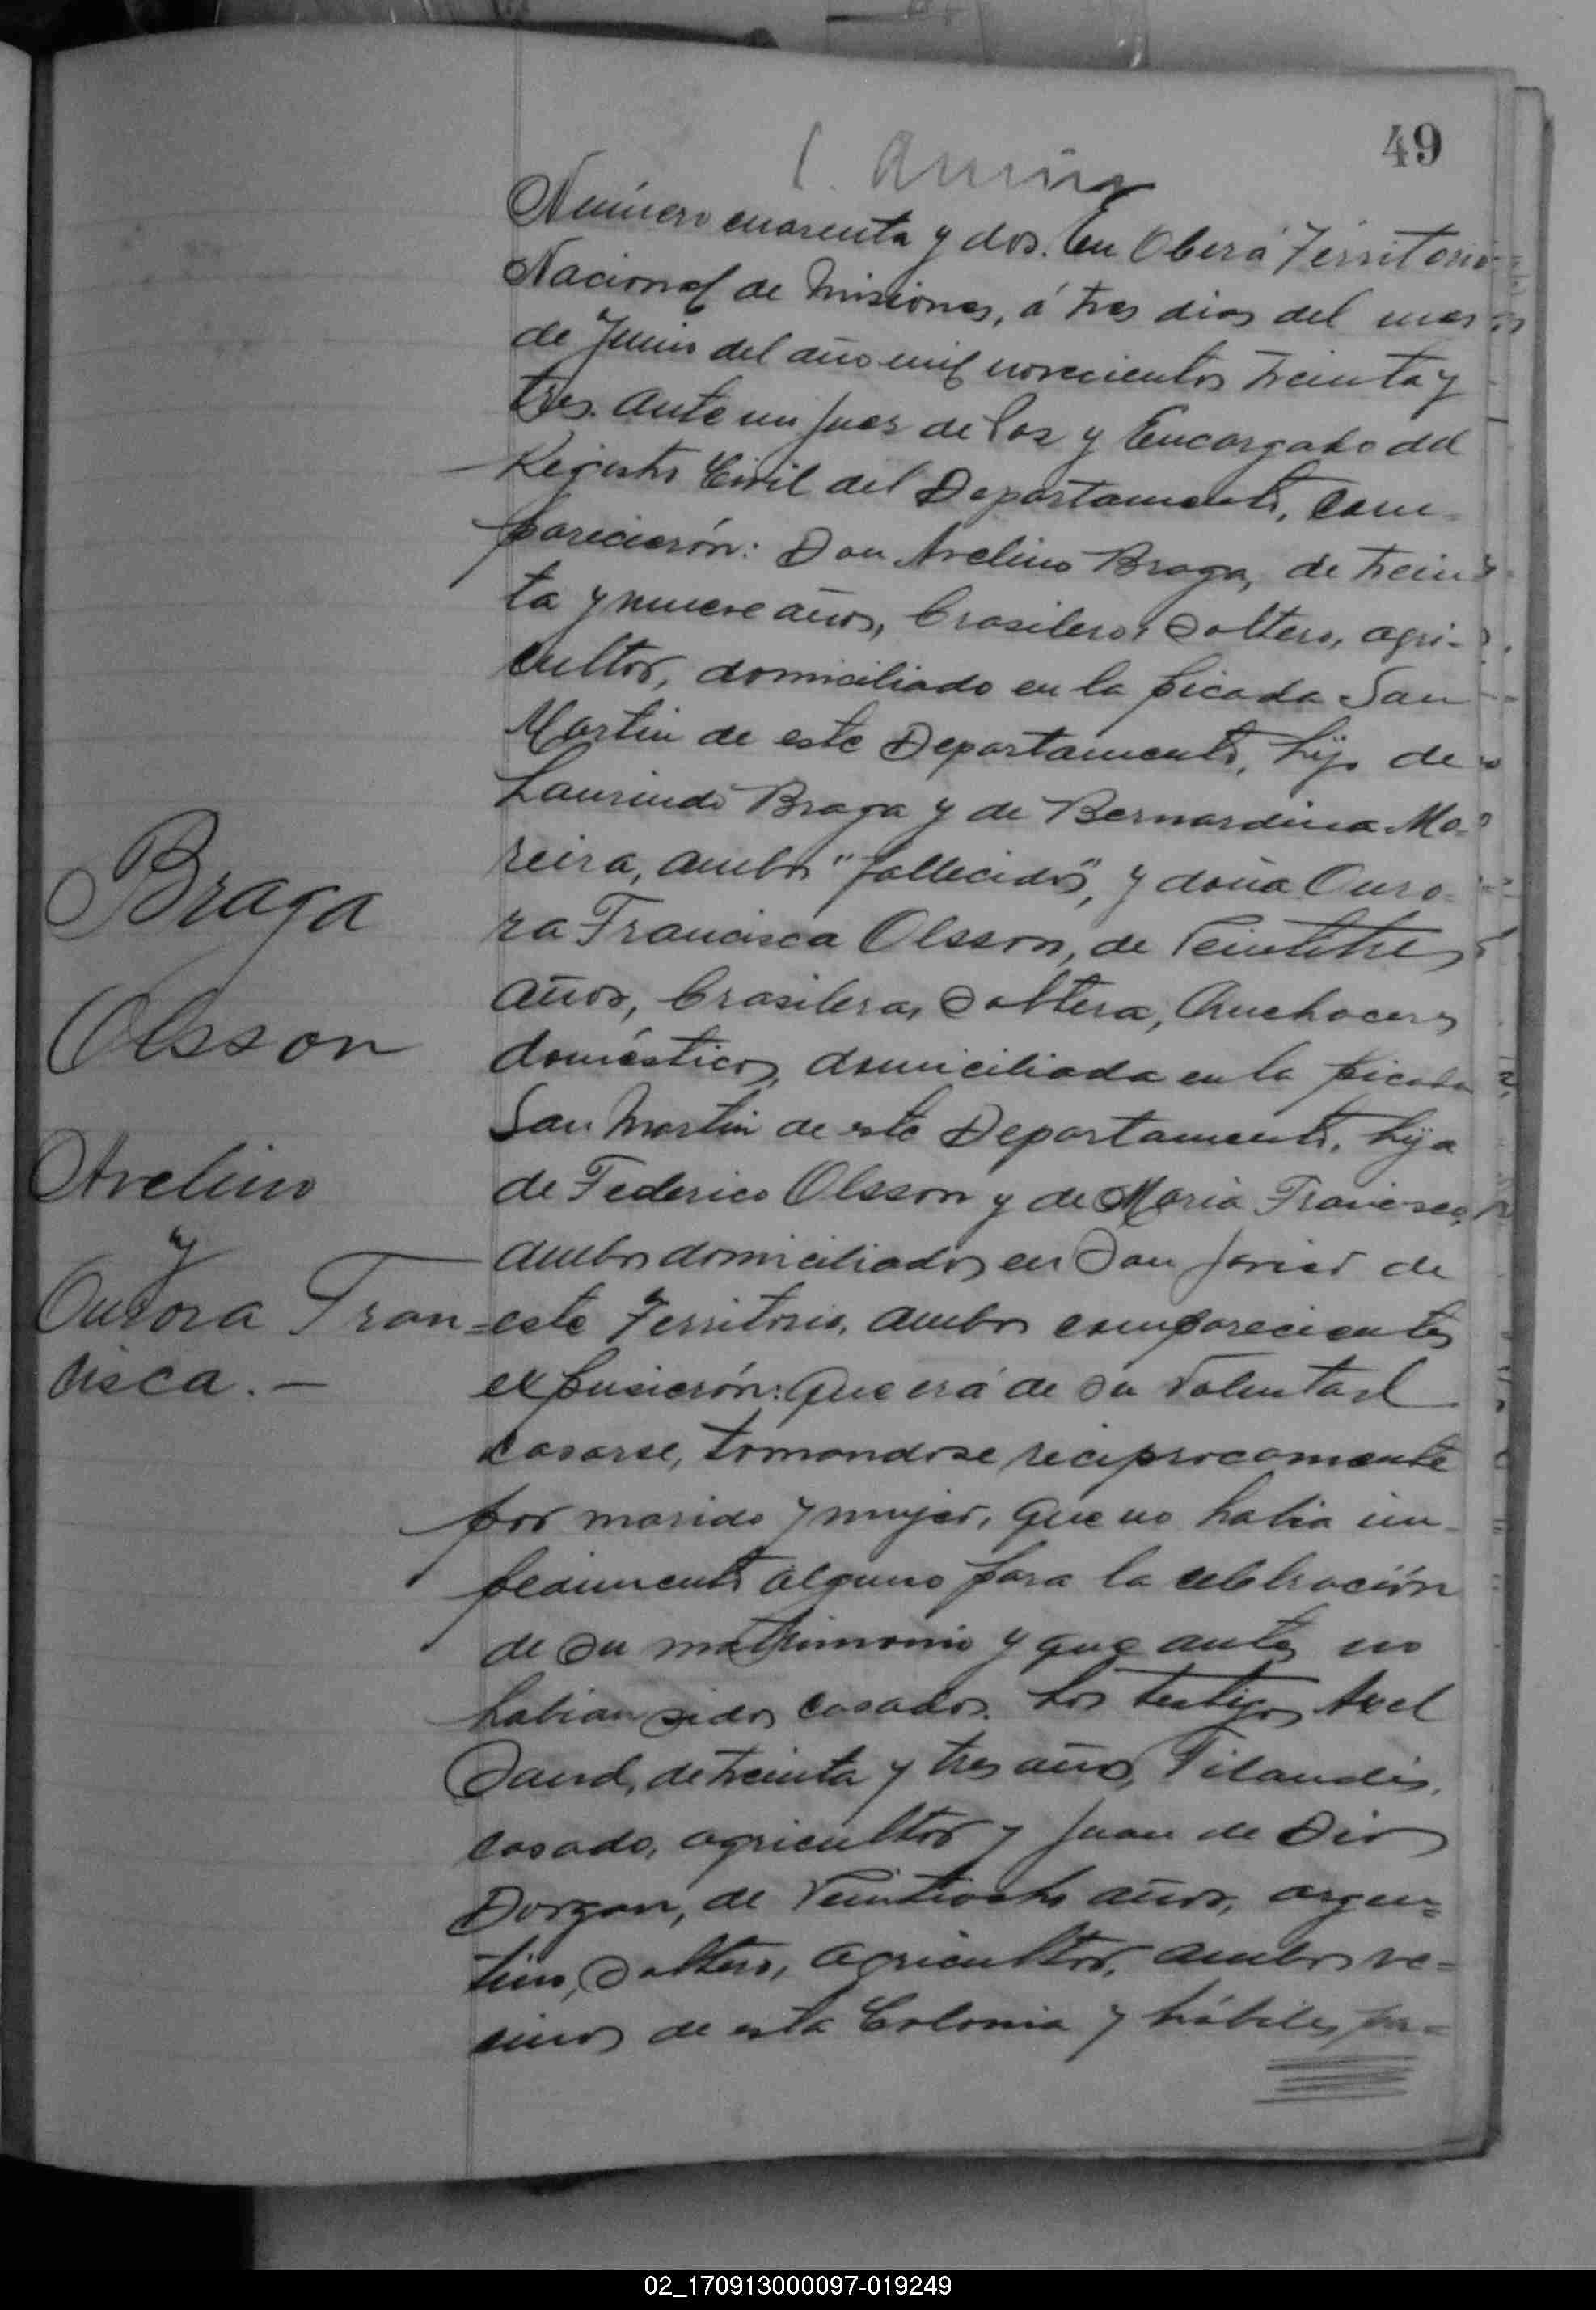 49
Número cuarenta y dos. En Oberá Territorio
Nacional de Misiones, á tres dias del mes
de Junio del año mil novecientos treinta y
tres. Ante mi Juez de Paz y Encargado del
Registro Civil del Departamento, com-
parecieron: Don Avelino Braga, de trein-
ta y nueve años, brasilero, soltero, agri-
cultor, domiciliado en la picada San
Martin de este Departamento, hijo de
Laurindo Braga y de Bernardina Mo-
reira, ambos "fallecidos", y doña Ouro-
ra Francisca Olsson, de veintitres
años, brasilera, soltera, quehaceres
domésticos, domiciliada en la picada
San Martin de este Departamento, hija
de Federico Olsson y de Maria
ambos domiciliados en San Javier de
este Territorio, ambos comparecientes
expusieron: que erá de su voluntad
casarse, tomandose reciprocamente
por marido y mujer, que no habia im-
pedimento alguno para la celebración
de su matrimonio y que antes no
habian sidos casados. Los testigos Axel
Sand, de treinta y tres años, Filandés,
casado, agricultor y Juan de Dios
Dorgan, de veintiocho años, argen-
tino, soltero, agricultor, ambos ve-
cinos de esta Colonia y hábiles, pa-
Braga
Olsson
Avelino
y
Ourora Fran-
cisca. —
02_170913000097-019249